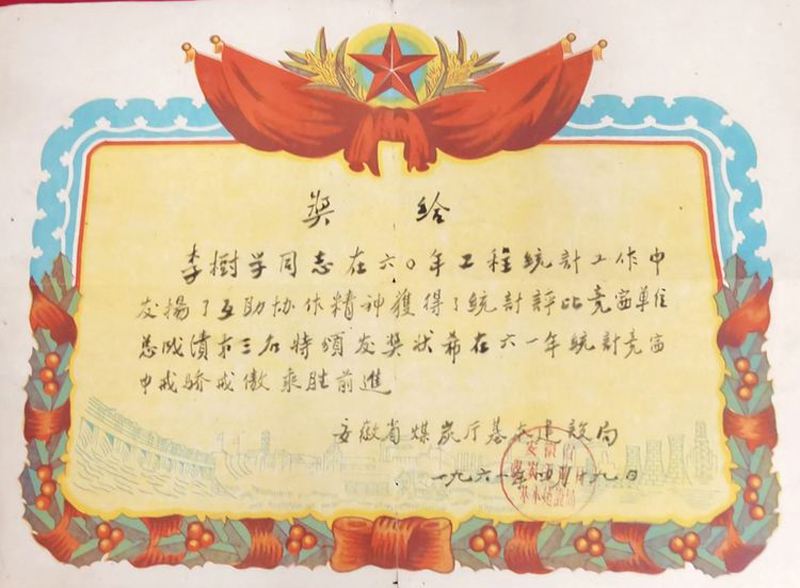 奖 给
李樹学同志在六〇年工程統計工作中
友揚了互助协作精神獲得了統計評比竞宙单位
总成漬㐧三名特頒友奖状希在六一年統計竞宙
中戒骄戒傲乘胜前進
安徽省煤炭厅基本建設局
一九六一年四月廿九日
安徽省
煤炭工业厅
基本建設局